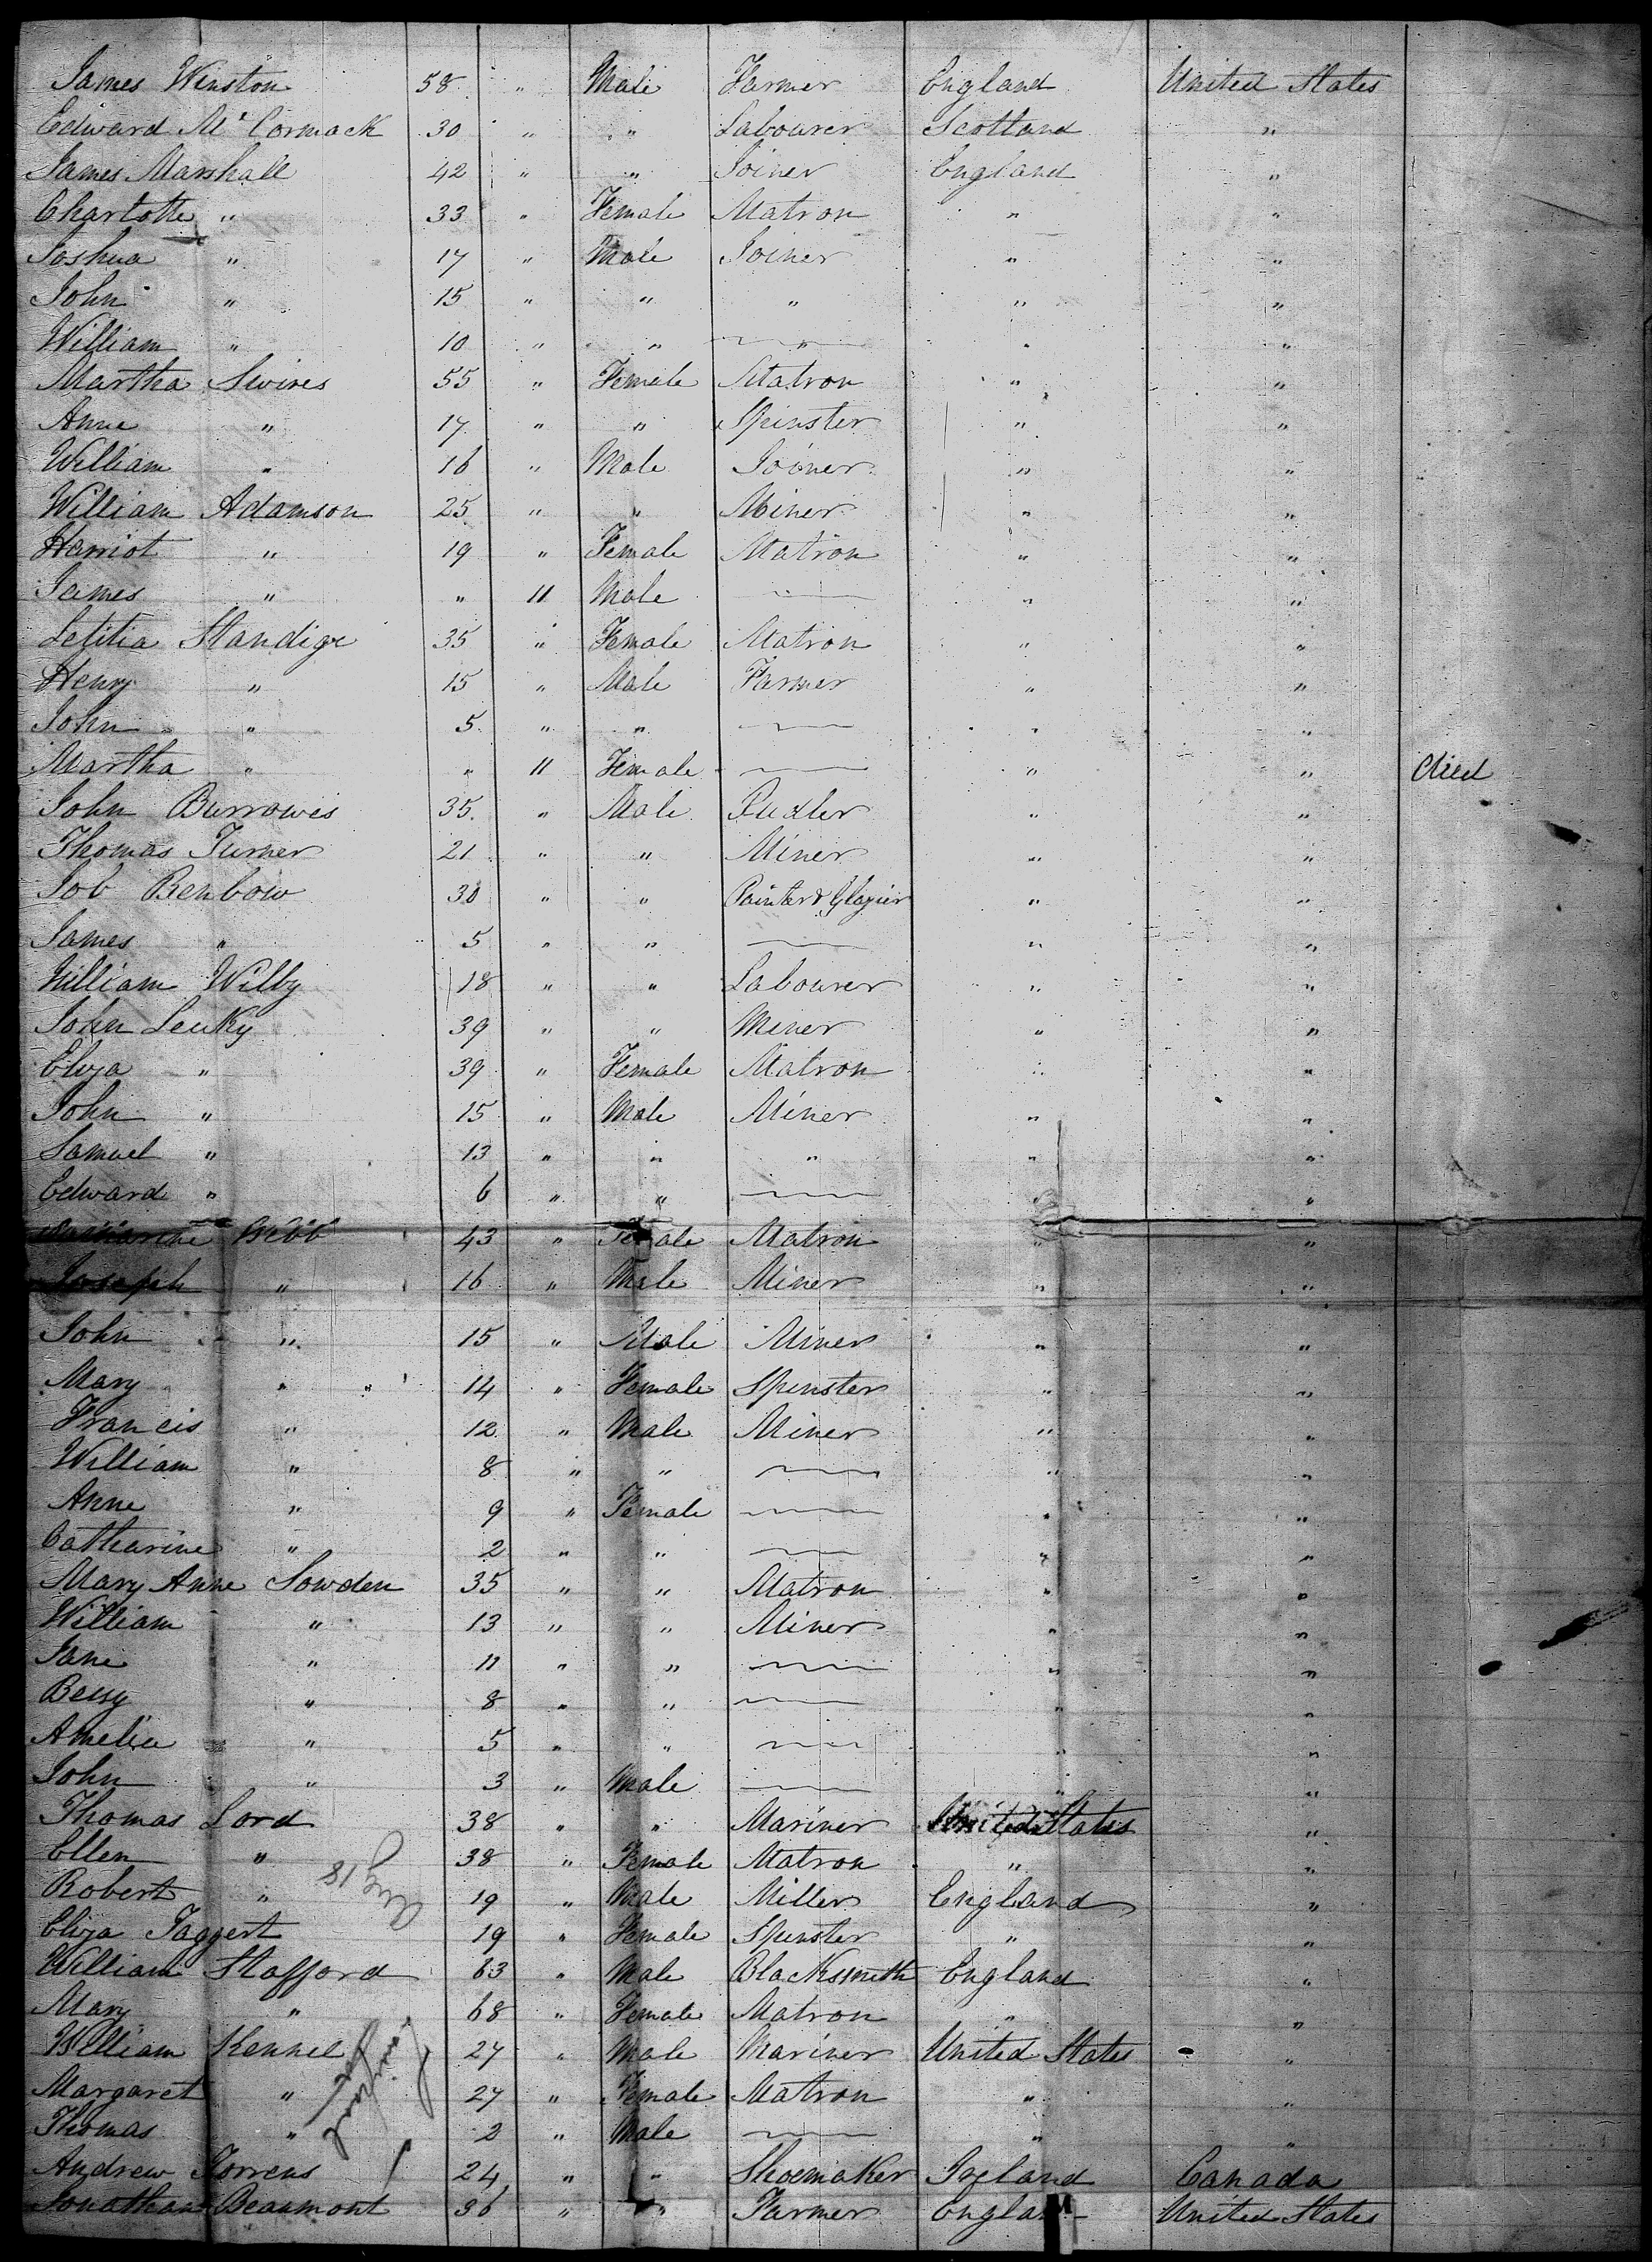 James Winston 58 " Male Farmer England United States
Edward Mc Cormack 30 " " Labourer Scotland "
James Marshall 42 " " Joiner England "
Charlotte " 33 " Female Matron " "
Joshua " 17 " Male Joiner " "
John " 15 " " " " "
William " 10 " " " " "
Martha Swires 55 " Female Matron " "
Anne " 17 " " Spinster " "
William " 16 " Male Joiner " "
William Adamson 25 " " Miner " "
Harriot " 19 " Female Matron " "
James " " 11 Male — " "
Letitia Standige 35 " Female Matron " "
Henry " 15 " Male Farmer " "
John " 5 " " — " "
Martha " " 11 Female — " " died
John Burrowes 35 " Male " "
Thomas Turner 21 " " Miner " "
Job Benbow 30 " " Painter & Glazier " "
James " 5 " " — " "
William Wilby 18 " " Labourer " "
John Leuky 39 " " Miner " "
Eliza " 39 " Female Matron " "
John " 15 " Male Miner " "
Samuel " 13 " " " " "
Edward " 6 " " — " "
Bebb 43 " Female Matron " "
Joseph " 16 " Male Miner " "
John " 15 " Male Miner " "
Mary " 14 " Female Spinster " "
Francis " 12 " Male Miner " "
William " 8 " " — " "
Anne " 9 " Female — " "
Catharine " 2 " " — " "
Mary Anne Sowden 35 " " Matron " "
William " 13 " " Miner " "
Jane " 11 " " — " "
Betsy " 8 " " — " "
Amelia " 5 " " — " "
John " 3 " Male — " "
Thomas Lord 38 " " Mariner United States "
Ellen " 38 " Female Matron " "
Robert " 19 " Male Miller England "
Aug 18
Eliza Taggert 19 " Female Spinster " "
William Stafford 63 " Male Blacksmith England "
Mary " 68 " Female Matron " "
William Kennel 27 " Male Mariner United States "
Margaret " 27 " Female Matron " "
Thomas " 2 " Male — " "
Andrew Torrens 24 " " Shoemaker Ireland Canada
Jonathan Beaumont 36 " " Farmer England United States